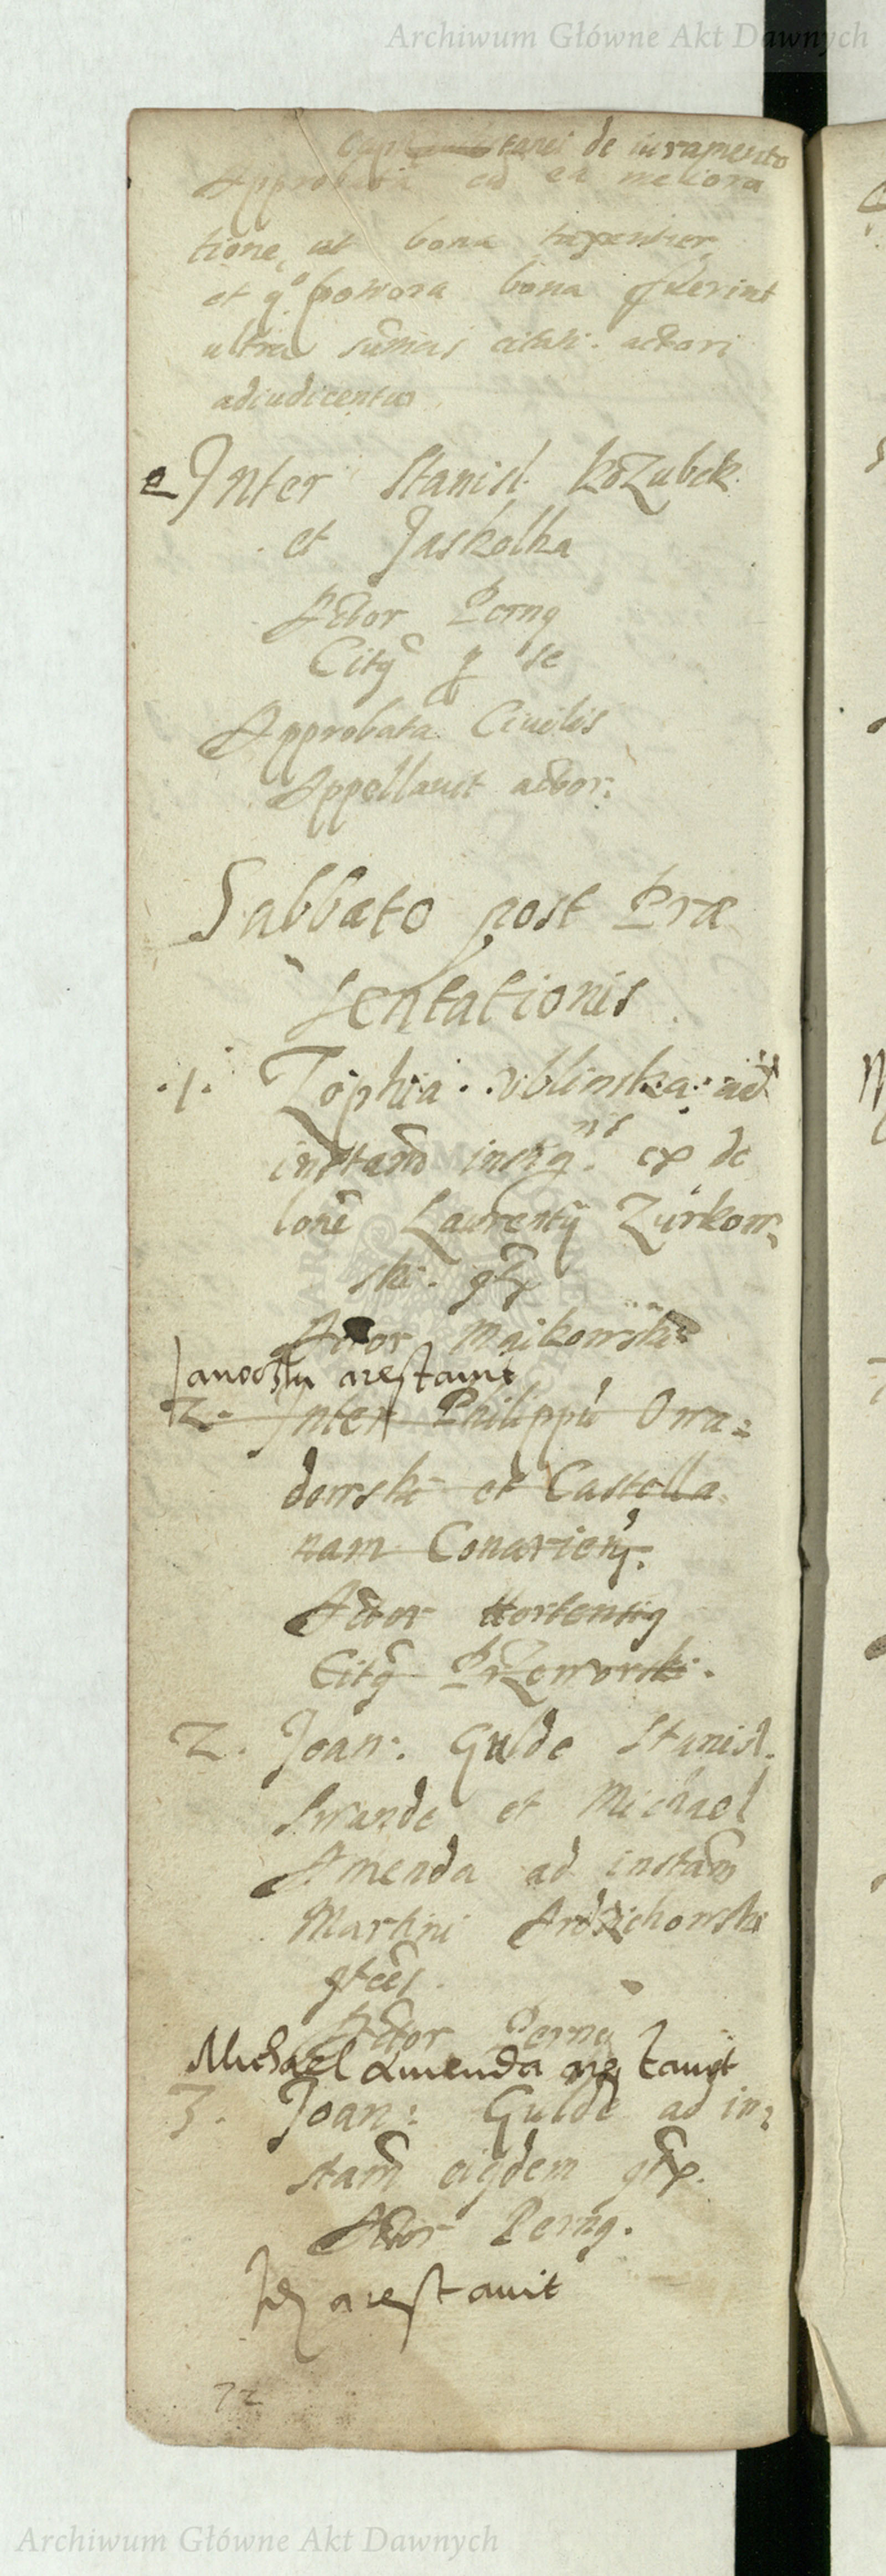 Archiwum Główne Akt Dawnych
tanei de iuramento
Approbata ad ea meliora
tione, ut bona
et q° bona fuerint
ultra sumas citati. actori
adiudicentur
Inter Stanisl. kozubek
et Jaskolka
Actor Perng
Citq p se
Approbata Ciuilis
Appellauit actor:
Sabbato post Præ
sentationis
.1. Zophia. ublinska. ad
instam instig. nis ex de
lone Laurentij Zurkow,
ski.
Actor Maikowski
Janoczka arestauit
2. Inter Philippu Owa=
dowski et Castella
nam Conarien.
Actor Hortensig
Citq Przeworski.
2. Joan: Gulde Stanisl.
Swande et Michael
Amenda ad instam
Martini Ardzichowski
Actor Perng
Michael Amenda arestauit
3. Joan: Gulde ad in=
stam eigdem
Actor Perng.
arestauit
72
Archiwum Główne Akt Dawnych